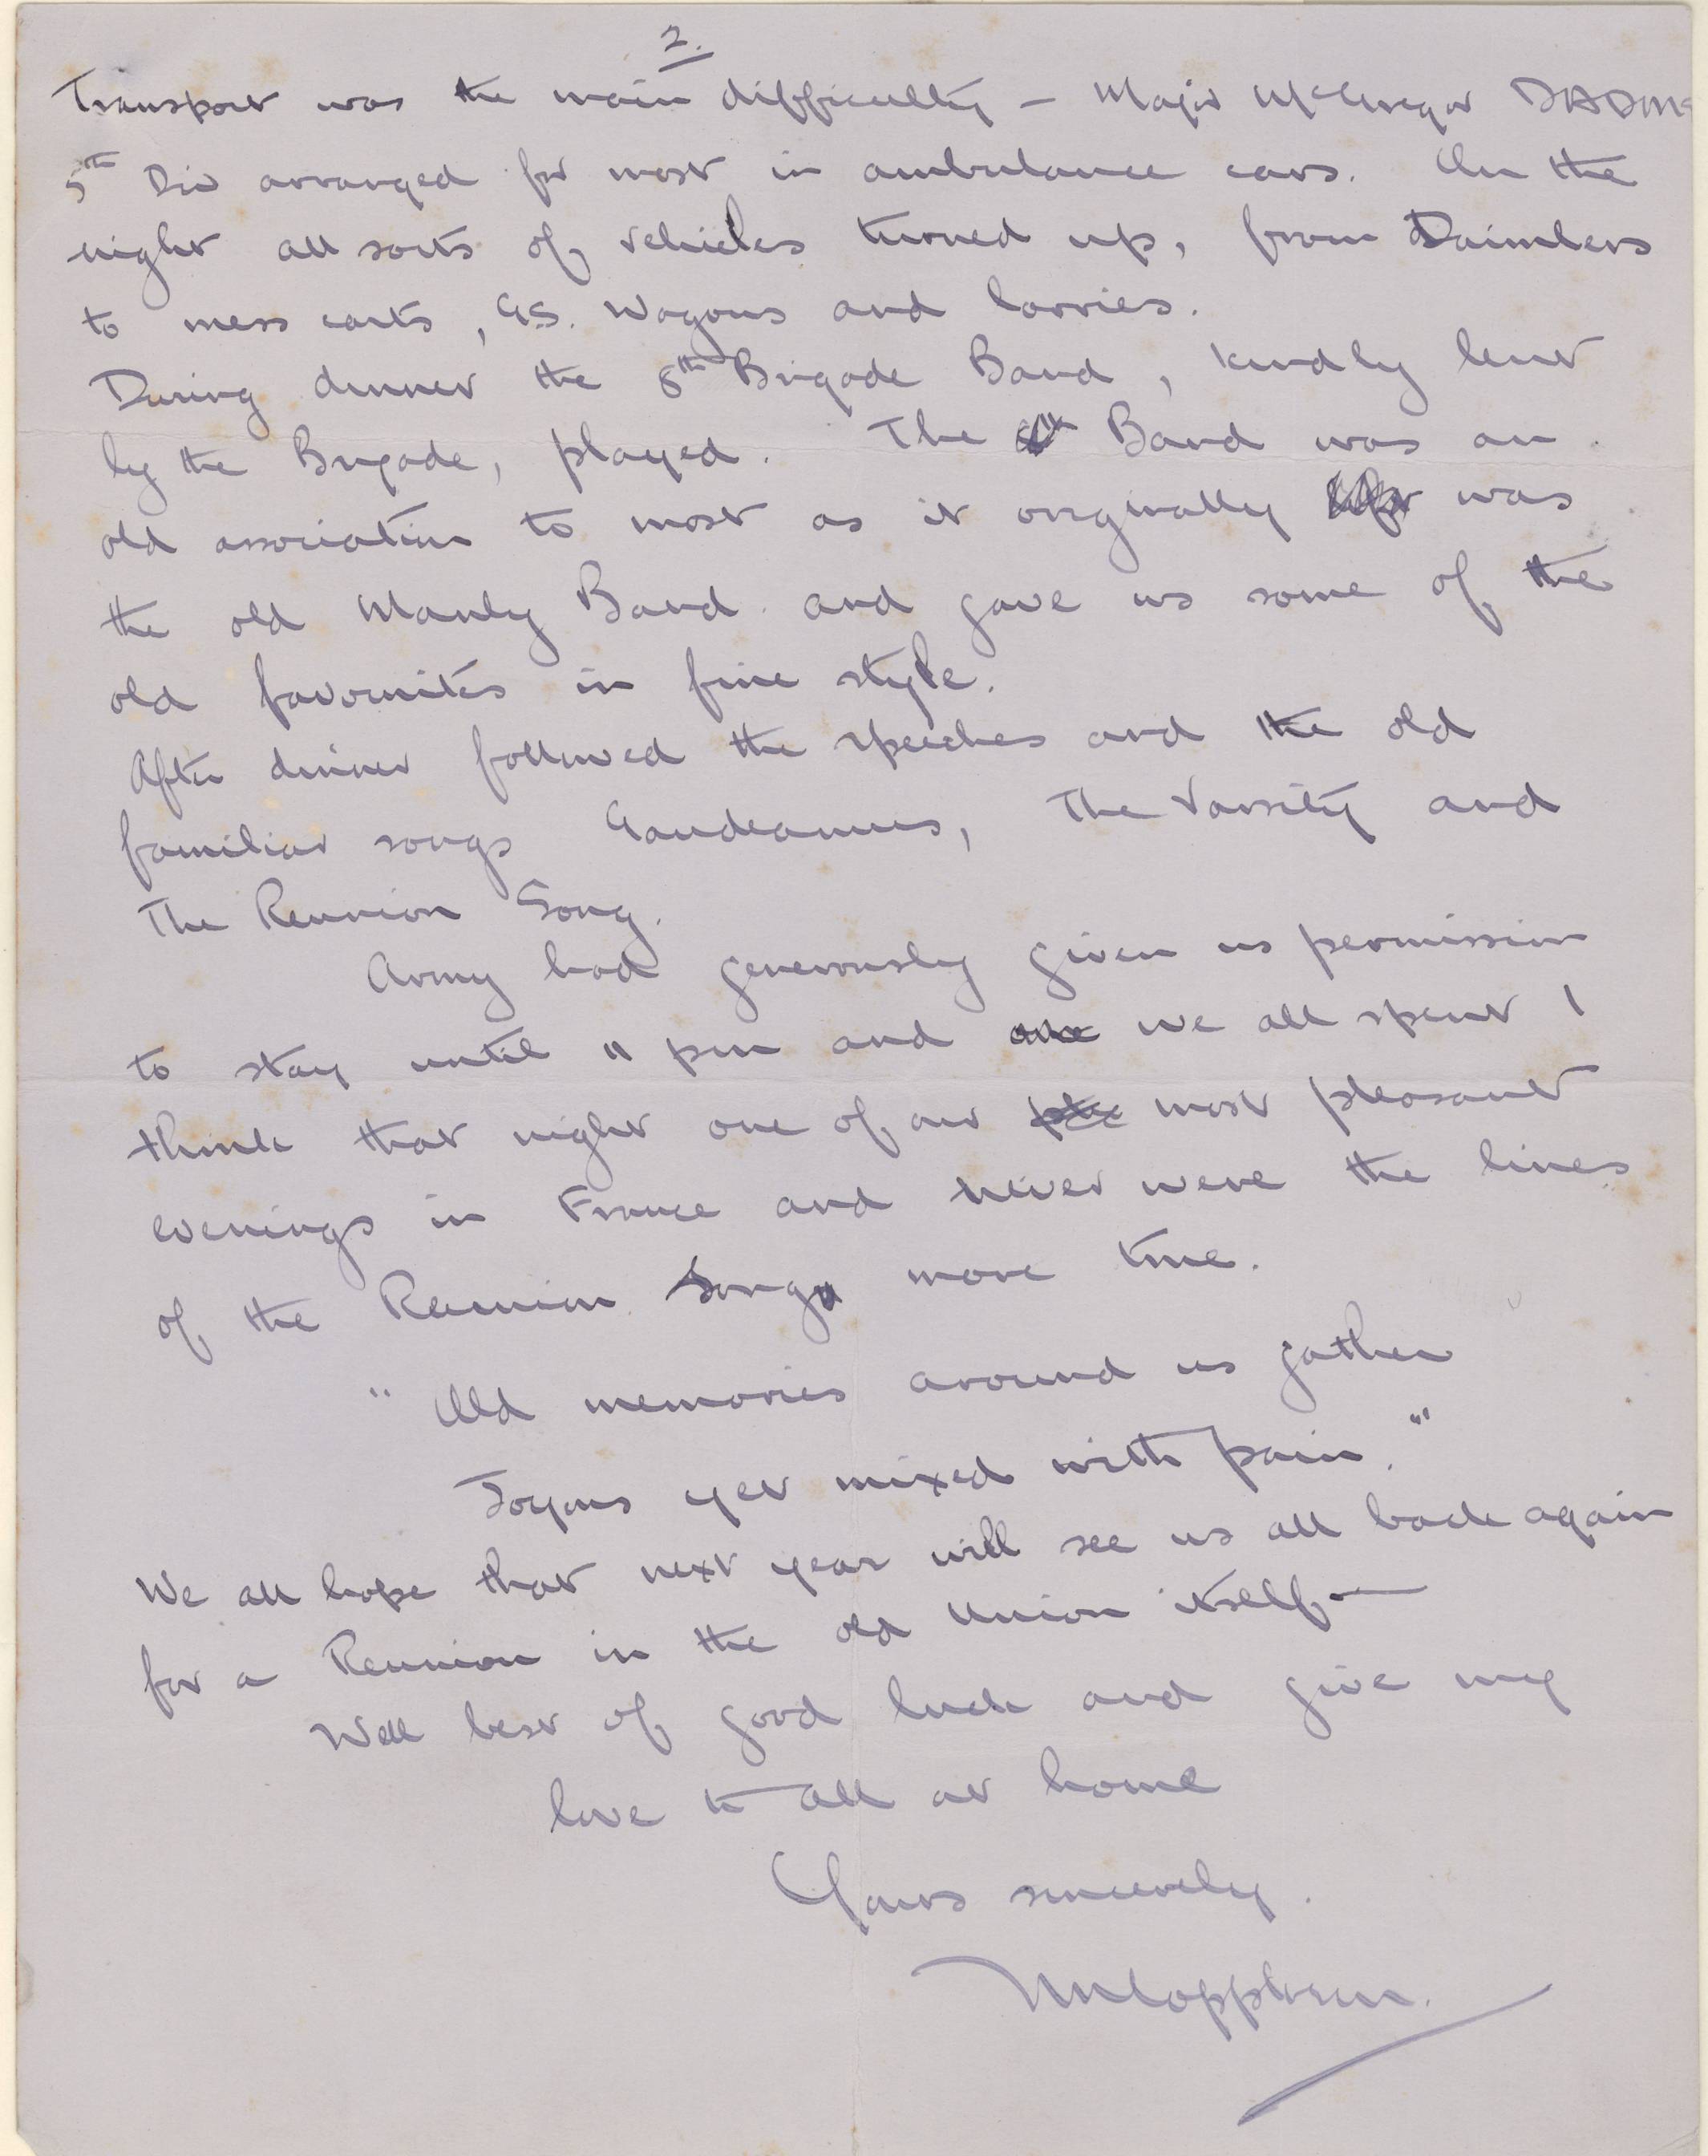 2.
Transport was the main difficulty – Major McGregor DADMS
5th Div arranged for most in ambulance cars. On the
night all sorts of vehicles turned up, from Daimlers
to mess carts, G.S. Wagons and lorries.
During dinner the 8th Brigade Band, kindly lent
by the Brigade, played. The Band was an
old association to most as it originally was
the old Manly Band and gave us some of the
old favourites in fine style.
After dinner followed the speeches and the old
familiar songs Gaudeamus, The Varsity and
The Reunion Song.
Army had generously given us permission
to stay until 11 pm and we all spent I
think that night one of our most pleasant
evenings in France and never were the lines
of the Reunion Song more true.
"Old memories around us gather
Joyous yet mixed with pain."
We all hope that next year will see us all back again
for a Reunion in the old Union itself –
Well best of good luck and give my
love to all at home
Yours sincerely.